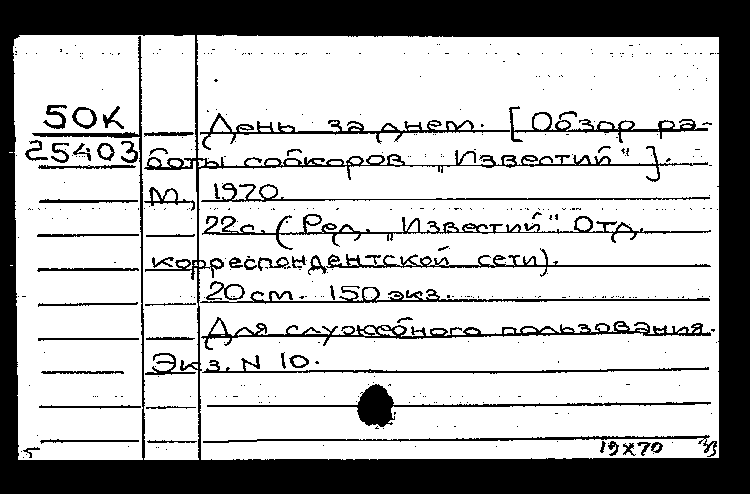 50К
25403
День за днем. [Обзор ра-
боты собкоров „Известий"].
М., 1970.
22с. (Ред. „Известий". Отд.
корреспондентской сети).
20 cm. 150 экз.
Для служебного пользования.
Экз. N 10.
19X70